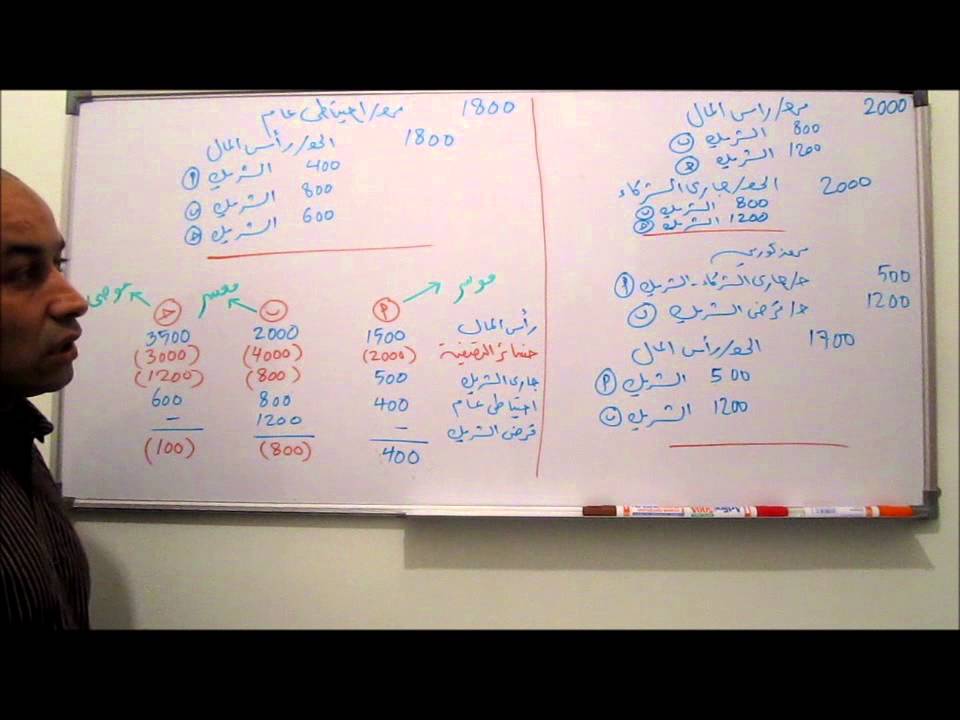 من ح/ رأس المال 2000
800 الشريك ب
1200 الشريك ج
2000 الى ح/ جارى الشركاء
800 الشريك ب
1200 الشريك ج
من مذكورين
500 ح/ جارى الشركاء - الشريك أ
1200 ح/ قرض الشريك ب
1700 الى ح/ رأس المال
500 الشريك أ
1200 الشريك ب
1800 من ح/ احتياطى عام
1800 الى ح/ رأس المال
400 الشريك أ
800 الشريك ب
600 الشريك ج
موسر معسر
أ ب ج
رأس المال 1500 2000 3500
خسائر التصفية (2000) (4000) (3000)
جارى الشريك 500 (800) (1200)
احتياطى عام 400 800 600
قرض الشريك - 1200 -
400 (800) (100)